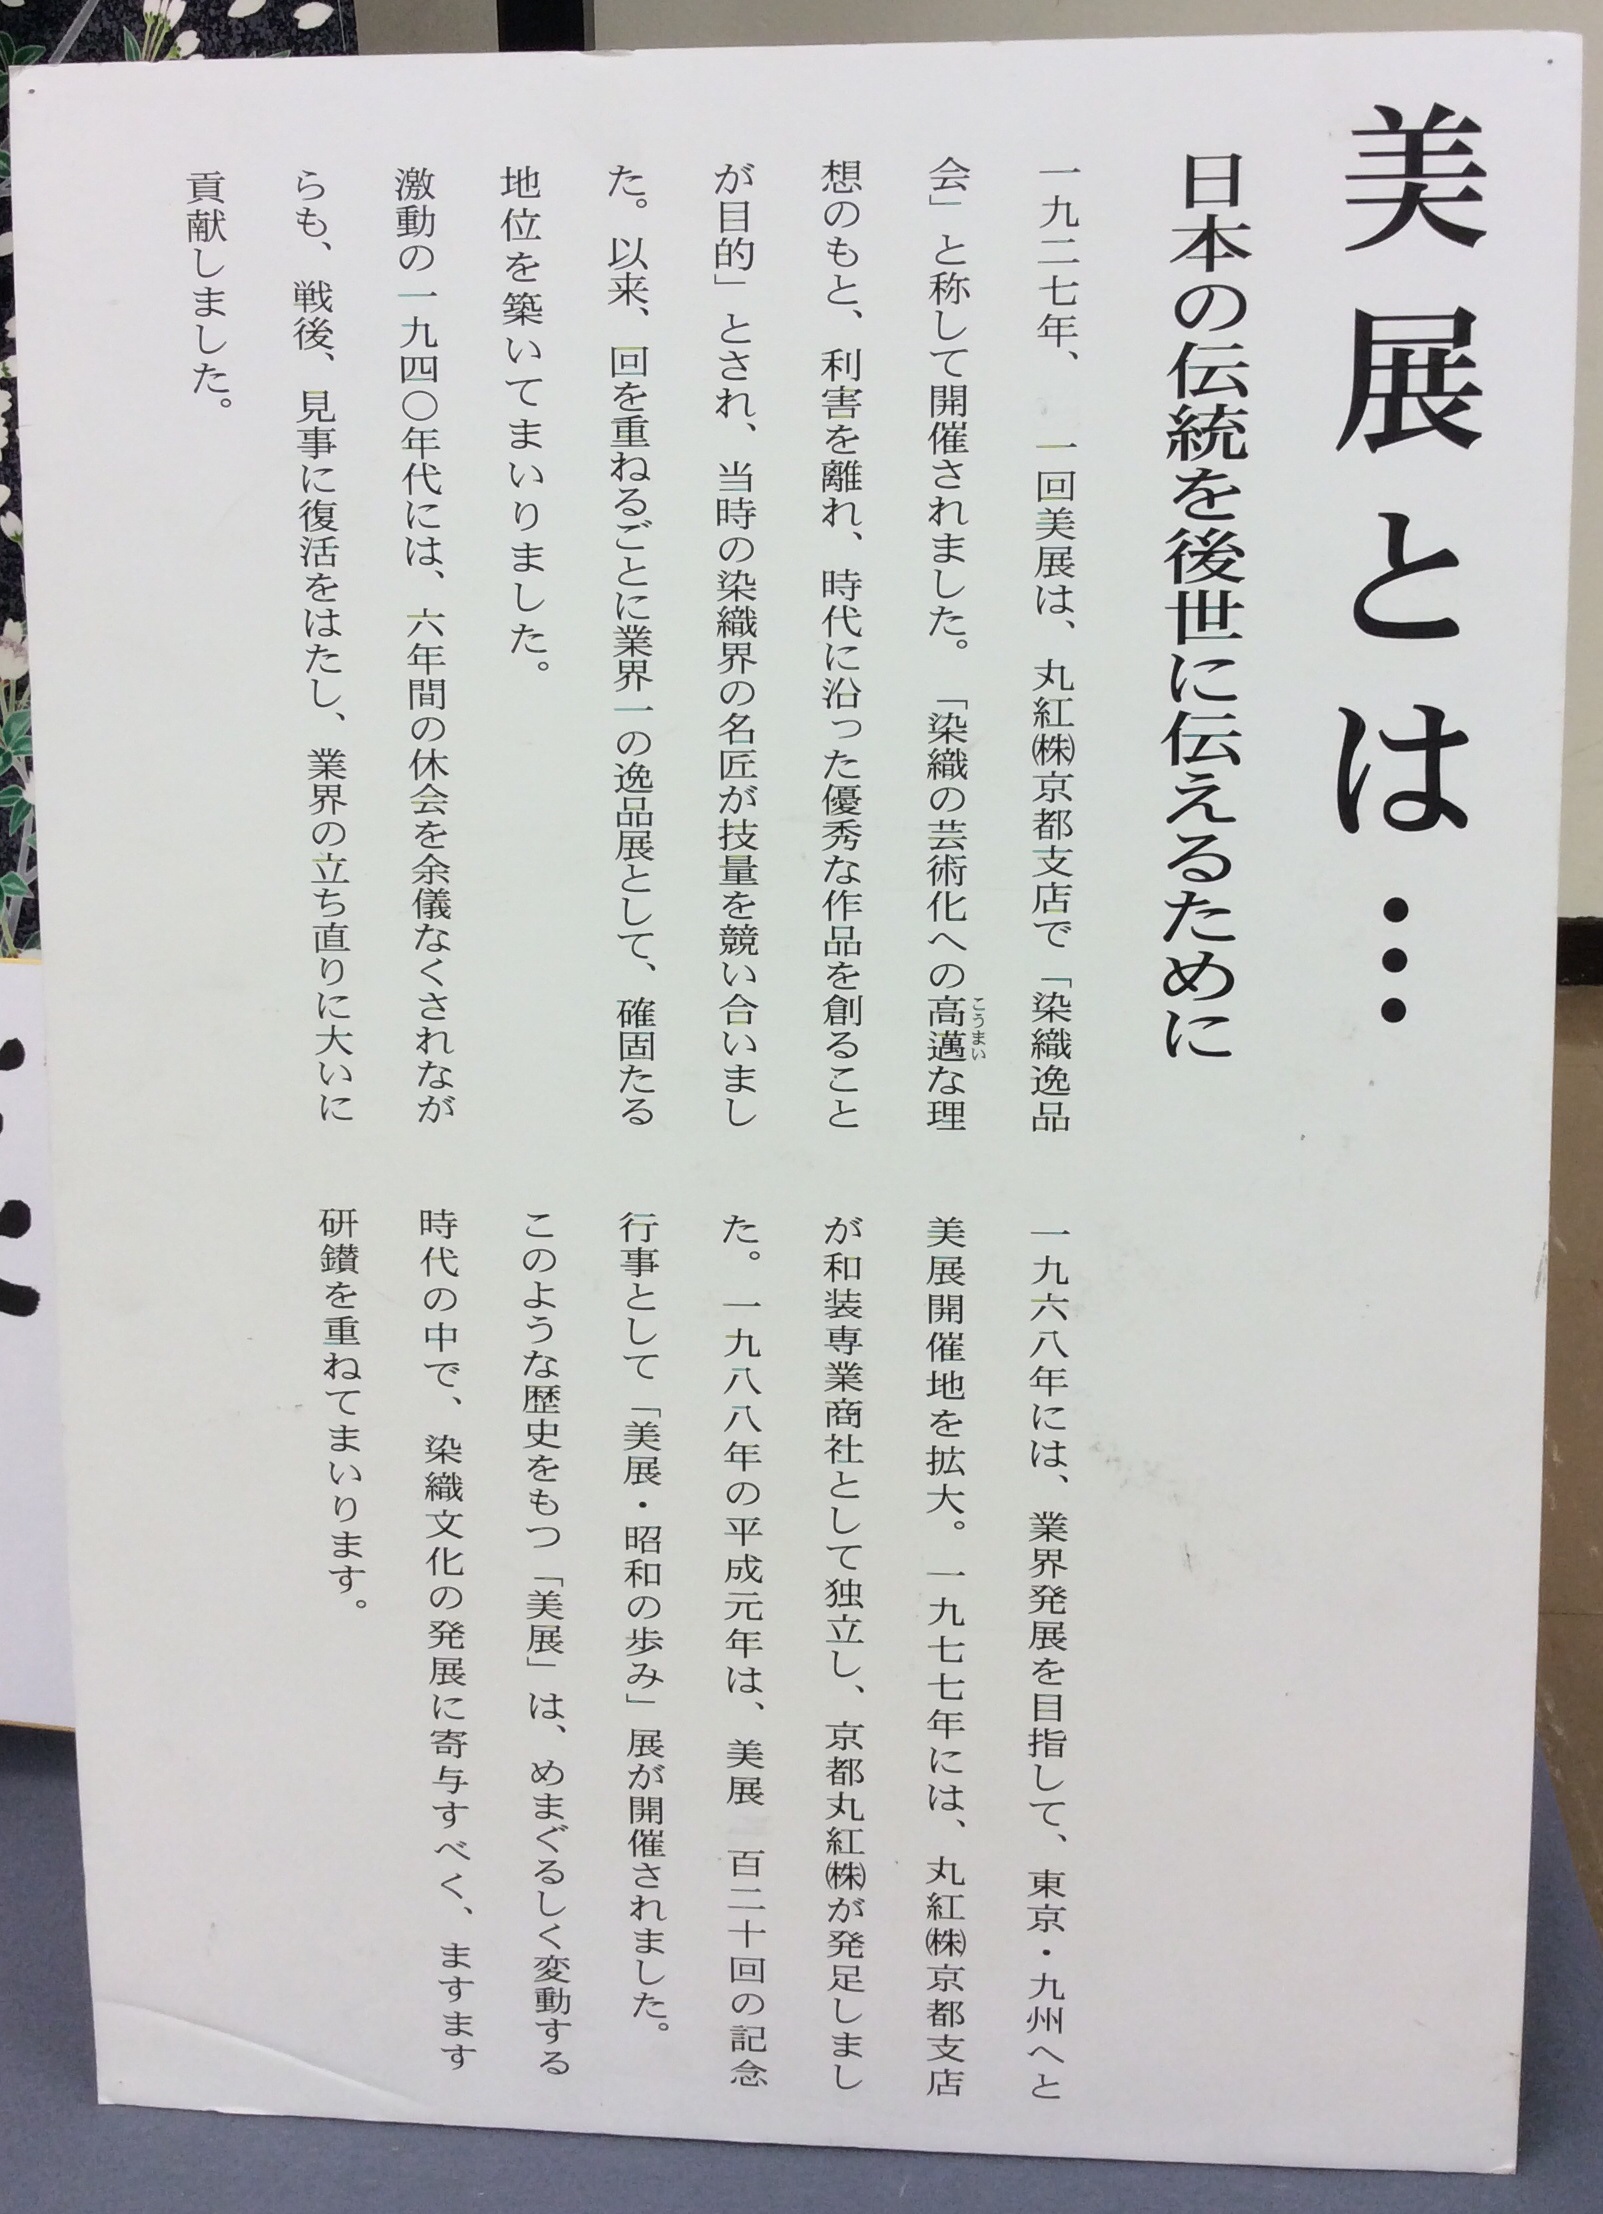 美展とは…
日本の伝統を後世に伝えるために
一九二七年、 一回美展は、丸紅㈱京都支店で「染織逸品
会」と称して開催されました。「染織の芸術化への高邁な理
こうまい
想のもと、利害を離れ、時代に沿った優秀な作品を創ること
が目的」とされ、当時の染織界の名匠が技量を競い合いまし
た。以来、回を重ねるごとに業界一の逸品展として、確固たる
地位を築いてまいりました。
激動の一九四〇年代には、六年間の休会を余儀なくされなが
らも、戦後、見事に復活をはたし、業界の立ち直りに大いに
貢献しました。
一九六八年には、業界発展を目指して、東京・九州へと
美展開催地を拡大。一九七七年には、丸紅㈱京都支店
が和装専業商社として独立し、京都丸紅㈱が発足しまし
た。一九八八年の平成元年は、美展 百二十回の記念
行事として「美展・昭和の歩み」展が開催されました。
このような歴史をもつ「美展」は、めまぐるしく変動する
時代の中で、染織文化の発展に寄与すべく、ますます
研鑽を重ねてまいります。